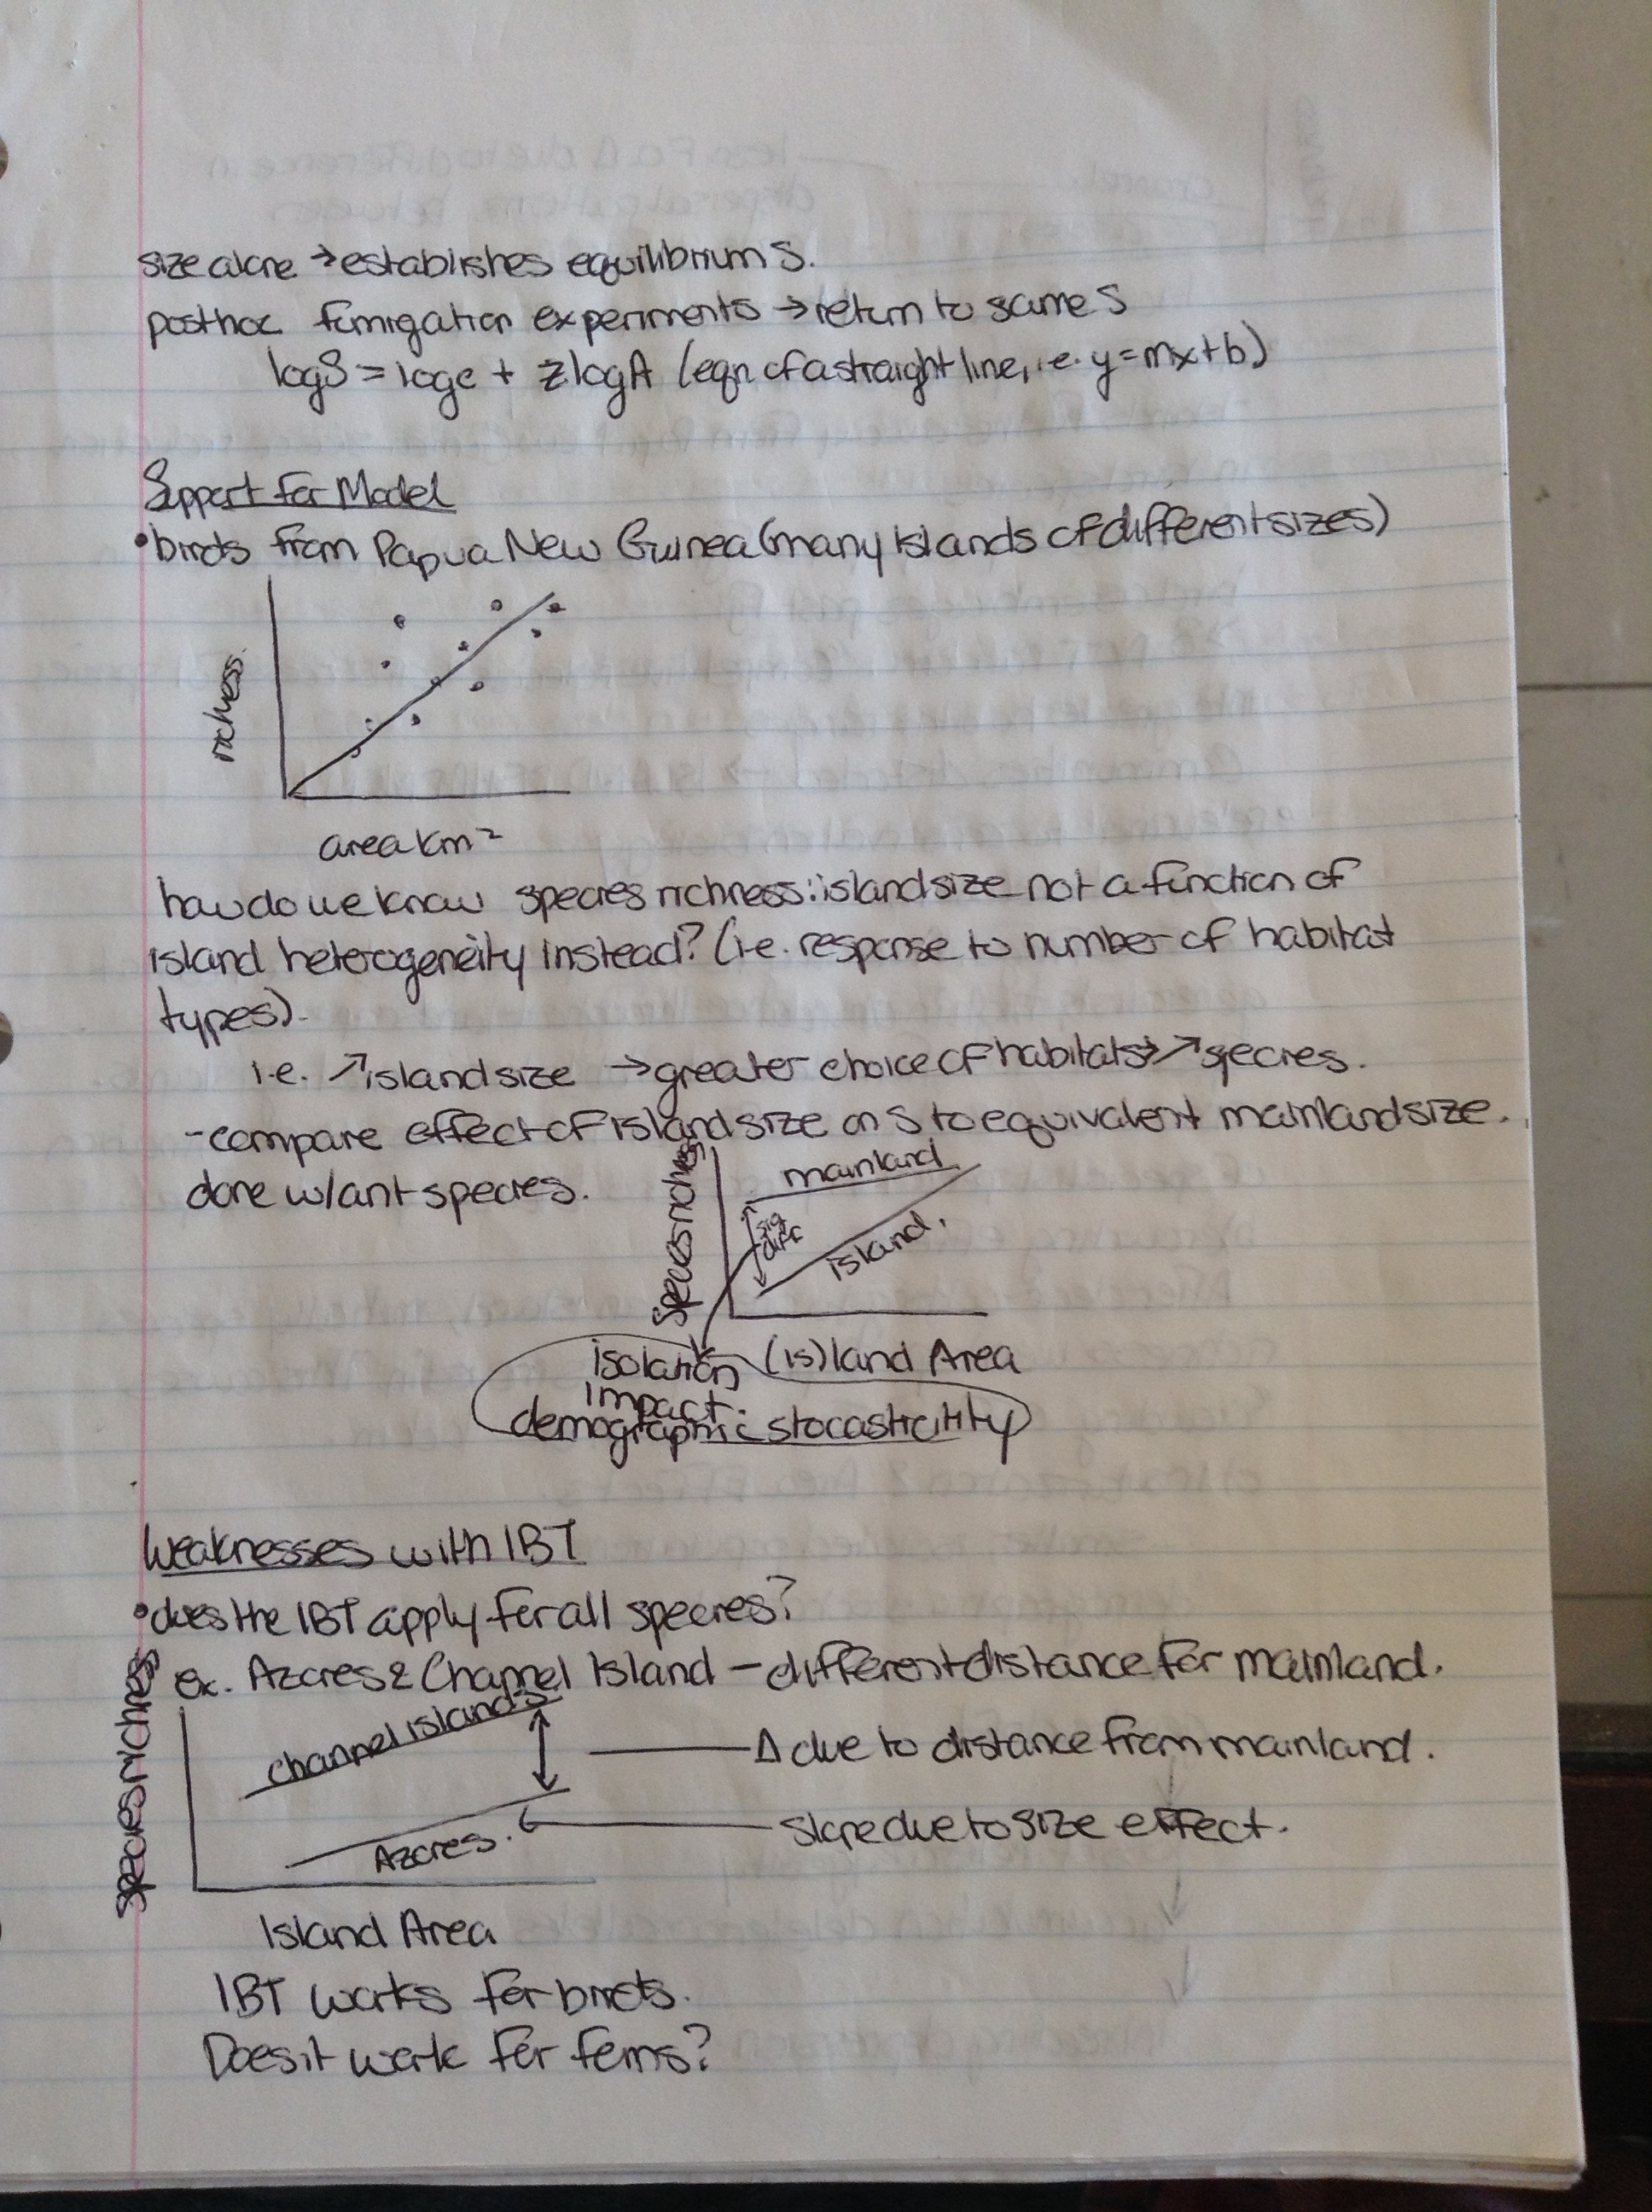 size alone → establishes equilibrium S.
posthoc fumigation experiments → return to same S
logS = logc + zlogA (eqn of a straight line, i.e. y=mx+b)
Support for Model
• birds from Papua New Guinea (many islands of different sizes)
richness.
area km²
how do we know species richness:island size not a function of
island heterogeneity instead? (i.e. response to number of habitat
types).
i.e. ↗island size → greater choice of habitats → ↗species.
- compare effect of island size on S to equivalent mainland size.
done w/ant species.
Species richness
mainland
sig diff
island.
(is)land Area
isolation
impact.
demographic stocasticitity
Weaknesses with IBT
• does the IBT apply for all species?
ex. Azores & Channel Island - different distance for mainland.
species richness
channel islands
Δ due to distance from mainland.
Azores.
slope due to size effect.
Island Area
IBT works for birds.
Does it work for ferns?